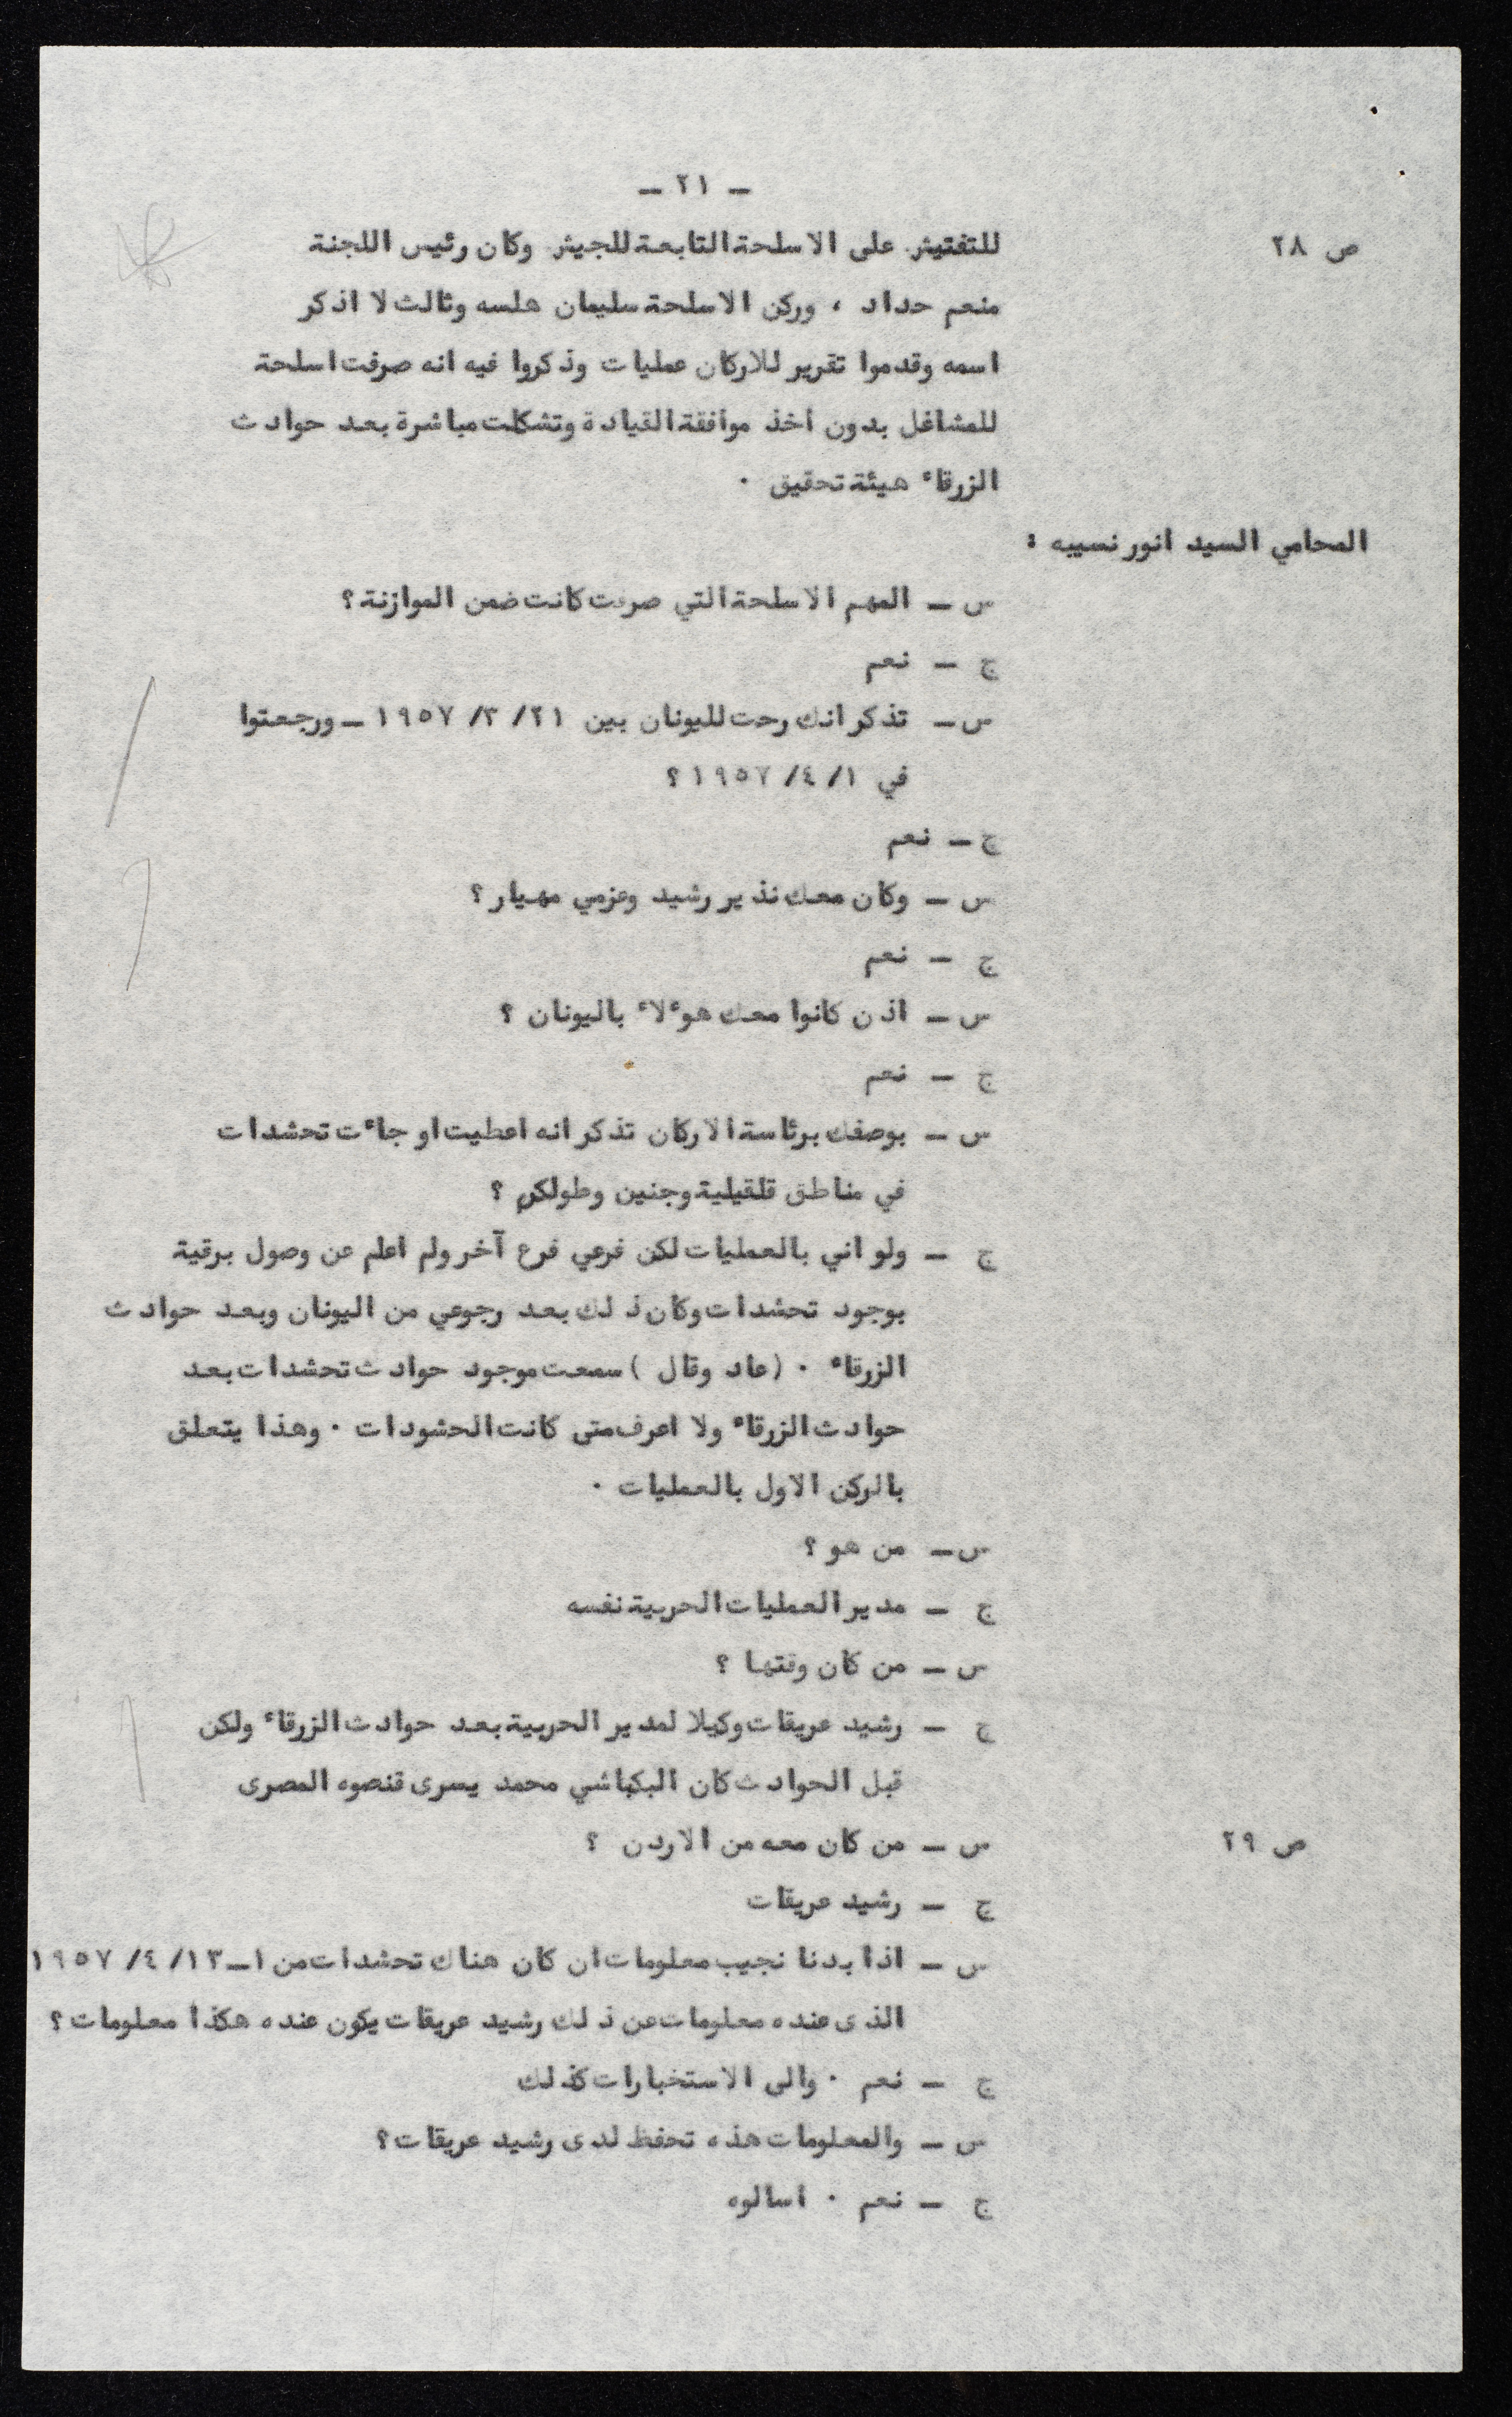 – ٢١ –
ص ٢٨ للتفتيش على الاسلحة التابعة للجيش وكان رئيس اللجنة
منعم حداد ، وركن الاسلحة سليمان هلسه وثالث لا اذكر
اسمه وقدموا تقرير للاركان عمليات وذكروا فيه انه صرفت اسلحة
للمشاغل بدون اخذ موافقة القيادة وتشكلت مباشرة بعد حوادث
الزرقاء هيئة تحقيق .
المحامي السيد انور نسيبه :
س – المهم الاسلحة التي صرفت كانت ضمن الموازنة ؟
ج – نعم
س – تذكر انك رحت لليونان بين ٢١/ ٣/ ١٩٥٧ – ورجعتوا
في ١/ ٤/ ١٩٥٧ ؟
ج – نعم
س – وكان معك نذير رشيد وعزمي مهيار ؟
ج – نعم
س – اذن كانوا معك هوءلاء باليونان ؟
ج – نعم
س – بوصفك برئاسة الاركان تذكر انه اعطيت او جاءت تحشدات
في مناطق قلقيلية وجنين وطولكرم ؟
ج – ولو اني بالعمليات لكن فرعي فرع آخر ولم اعلم عن وصول برقية
بوجود تحشدات وكان ذلك بعد رجوعي من اليونان وبعد حوادث
الزرقاء . (عاد وقال ) سمعت موجود حوادث تحشدات بعد
حوادث الزرقاء ولا اعرف متى كانت الحشودات . وهذا يتعلق
بالركن الاول بالعمليات .
س – من هو ؟
ج – مدير العمليات الحربية نفسه
س – من كان وقتها ؟
ج – رشيد عريقات وكيلا لمدير الحربية بعد حوادث الزرقاء ولكن
قبل الحوادث كان البكباشي محمد يسرى قنصوه المصرى
ص ٢٩ س – من كان معه من الاردن ؟
ج – رشيد عريقات
س – اذا بدنا نجيب معلومات ان كان هناك تحشدات من ١–١٣/ ٤/ ١٩٥٧
الذى عنده معلومات عن ذلك رشيد عريقات يكون عنده هكذا معلومات ؟
ج – نعم . والى الاستخبارات كذلك
س – والمعلومات هذه تحفظ لدى رشيد عريقات ؟
ج – نعم . اسالوه